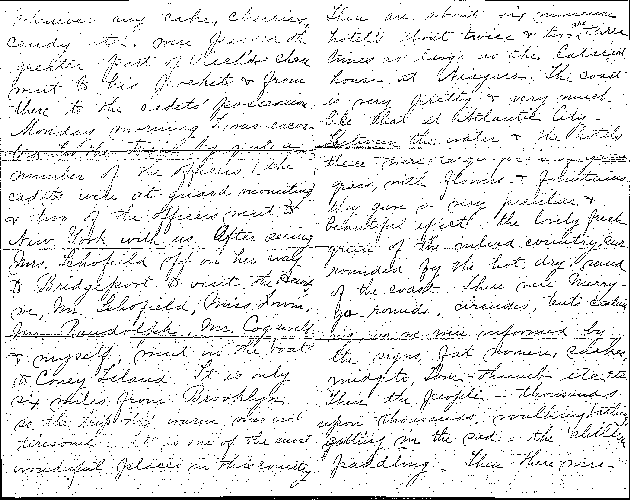 Whenever any cake, cherries,
candy etc. were passed the
greater part of Uncle's share
went to his pockets & from
there to the cadets' possession.
Monday morning I was escor-
ted to the train by quite a
number of the officers (the
cadets were at guard mounting
& two of the officers went to
New York with us. After seeing
Mrs. Schofield off on her way
to Bridgeport to visit the
we, Mr. Schofield, Miss
Mr. Randolph, Mr. Cogswell
& myself, went in the boat
to Coney Island. It is only
six miles from Brooklyn
so the trip this warm was not
tiresome. It is one of the most
wonderful places in this country.
There are about six mammoth
hotels about twice & two three
times as large as the Cataract
House at Niagara. The coast
is very pretty & very much
like that at Atlantic City.
Between the water & the hotels
there were large
grass, with flowers & fountains.
They give a very peculiar &
beautiful effect. the lovely fresh
green of the inland country, sur
rounded by the hot dry sand
of the coast. There were Merry-
go rounds, circuses,
as we were informed by
the signs, fat women,
midgets, Tom-thumb etc etc
Then the people - thousands
upon thousands walking, bathing
in the sand - the children
paddling. Then there were